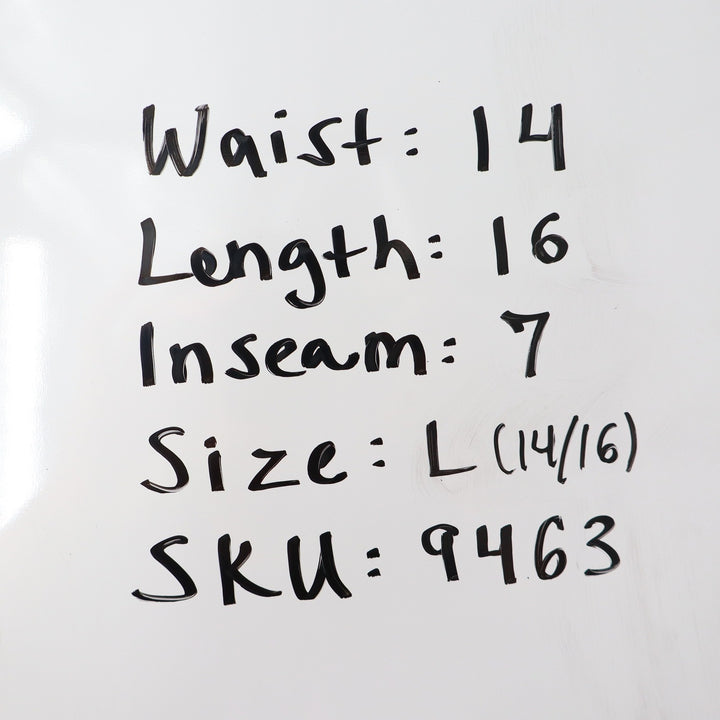 Waist: 14
Length: 16
Inseam: 7
Size: L (14/16)
SKU: 9463